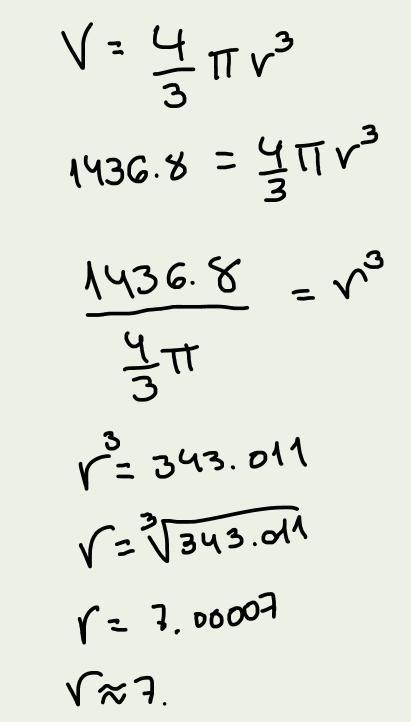 V = 4/3 π r³
1436.8 = 4/3 π r³
1436.8 / (4/3 π) = r³
r³ = 343.011
r = ³√343.011
r = 7.00007
r ≈ 7.